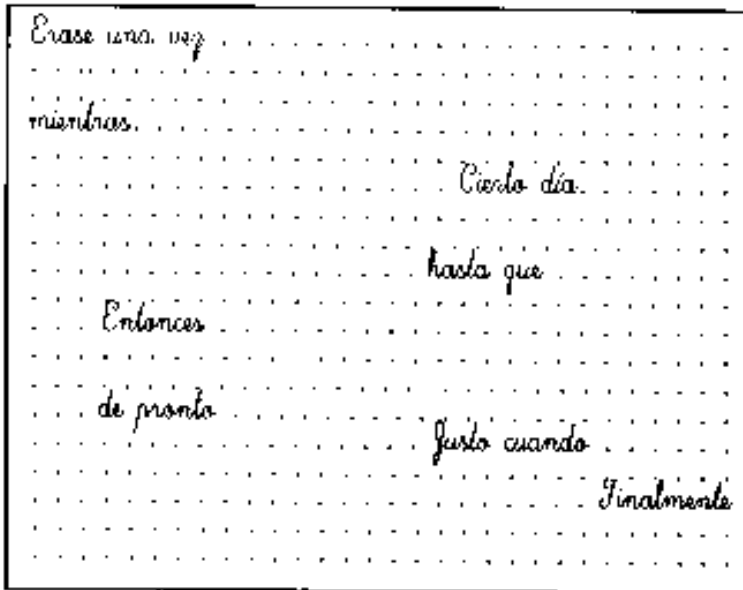 Erase una vez
mientras
Cierto día
hasta que
Entonces
de pronto
Justo cuando
Finalmente